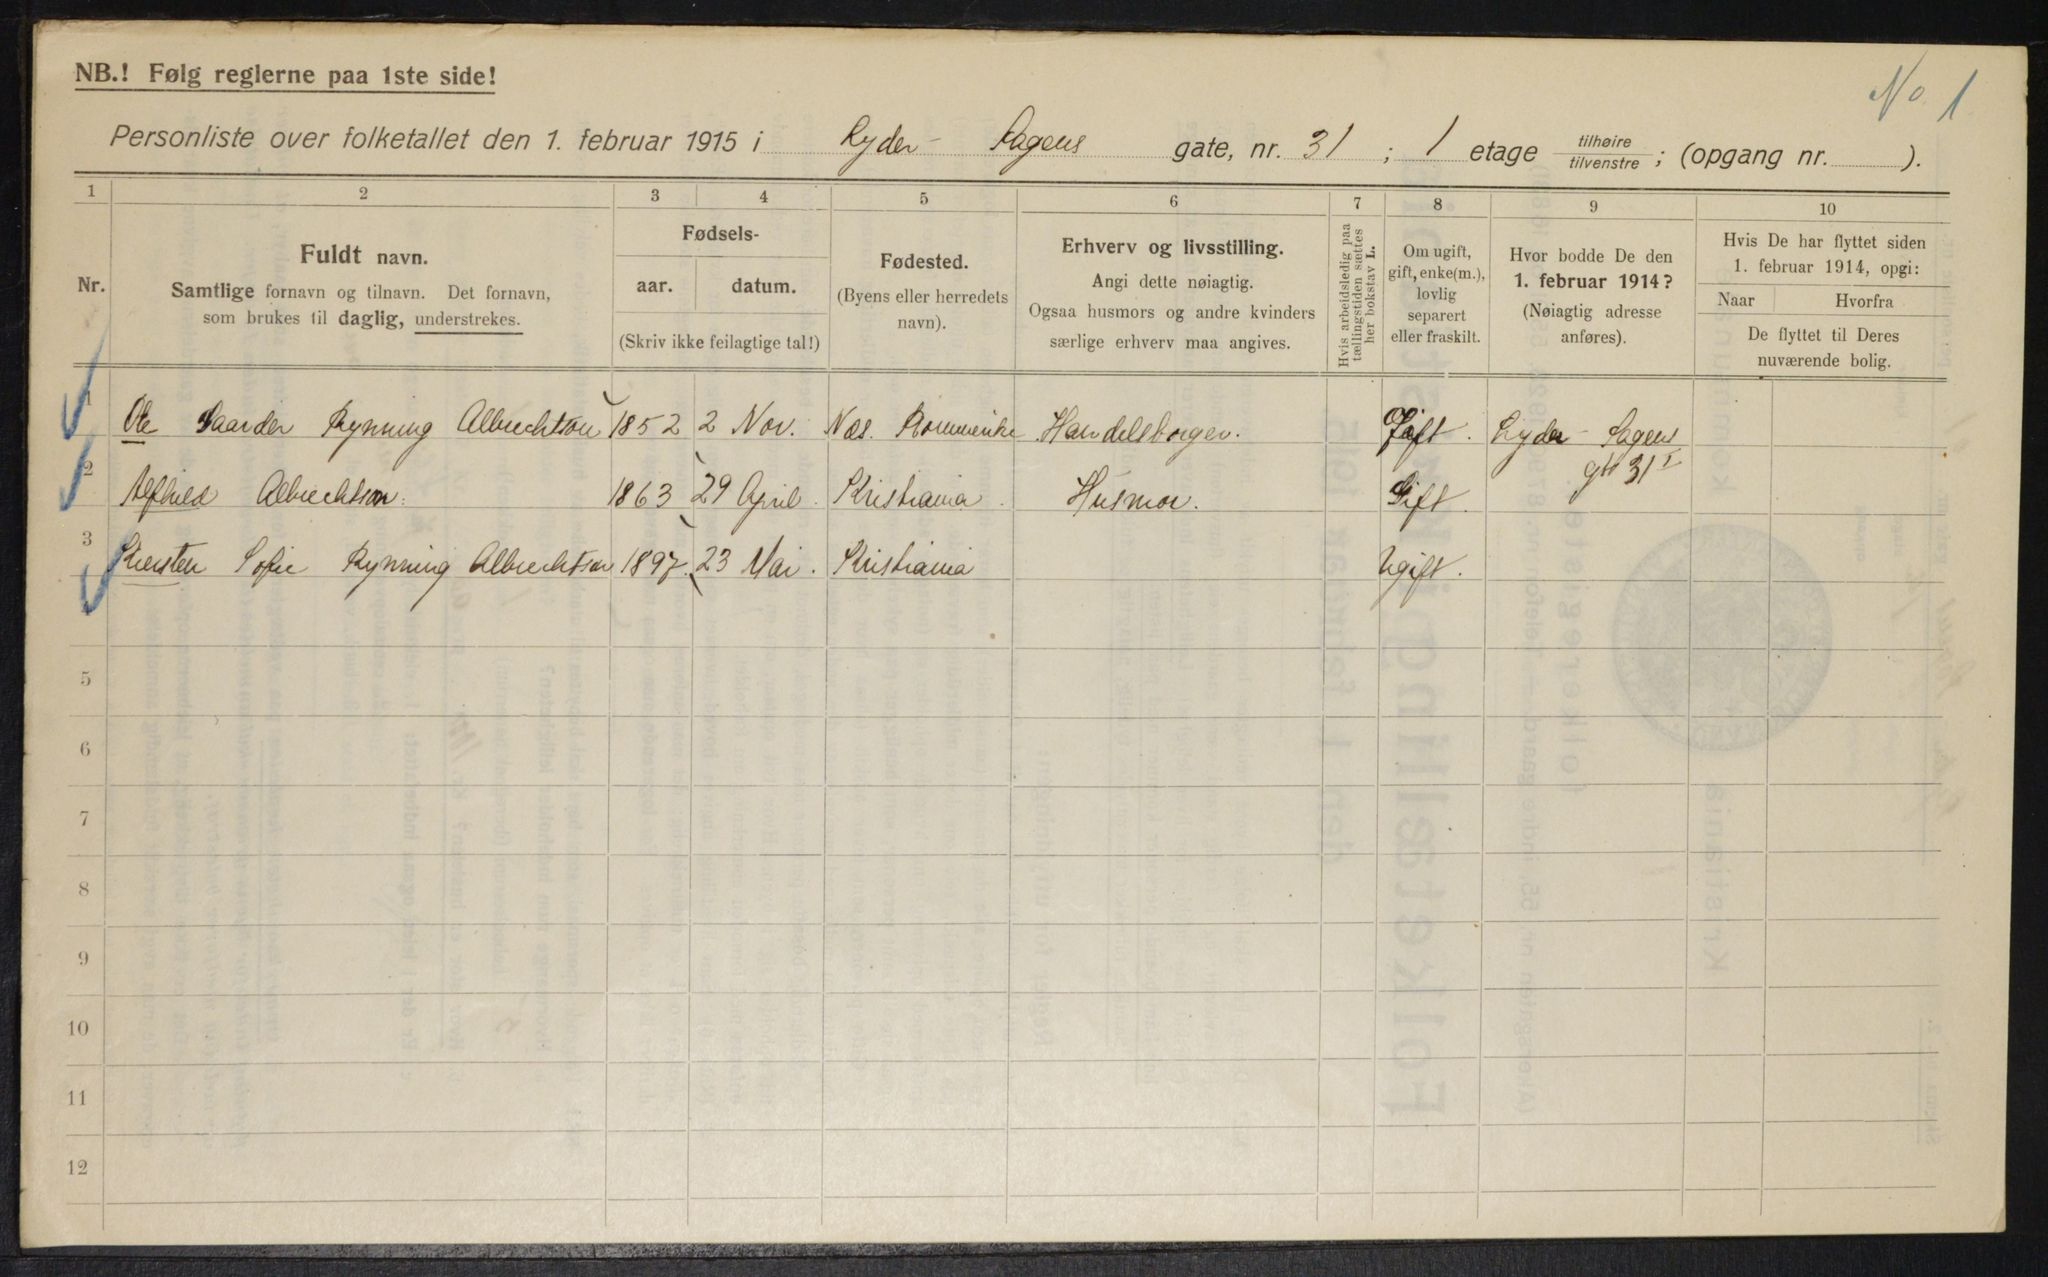 No 1
NB.! Følg reglerne paa 1ste side!
Personliste over folketallet den 1. februar 1915 i Lyder Sagens gate, nr. 31 ; 1 etage tilhøire tilvenstre ; (opgang nr. ).
1 2 3 4 5 6 7 8 9 10
Nr.
Fuldt navn.
Samtlige fornavn og tilnavn. Det fornavn,
som brukes til daglig, understrekes.
Fødsels-
aar. datum.
(Skriv ikke feilagtige tal!)
Fødested.
(Byens eller herredets
navn).
Erhverv og livsstilling.
Angi dette nøiagtig.
Ogsaa husmors og andre kvinders
særlige erhverv maa angives.
Hvis arbeidsledig paa
tællingstiden sættes
her bokstav L.
Om ugift,
gift, enke(m.),
lovlig
separert
eller fraskilt.
Hvor bodde De den
1. februar 1914?
(Nøiagtig adresse
anføres).
Hvis De har flyttet siden
1. februar 1914, opgi:
Naar Hvorfra
De flyttet til Deres
nuværende bolig.
1 Ole Rynning Albrechtson 1852 2 Nov. Næs. Romerike Handelsborger. Gift. Lyder Sagens
gt 31 I
2 Alfhild Albrechtson. 1863 29 April. Kristiania. Husmor. Gift.
3 Kirsten Sofie Rynning Albrechtson 1897. 23 Mai. Kristiania Ugift.
5
6
7
8
9
10
11
12